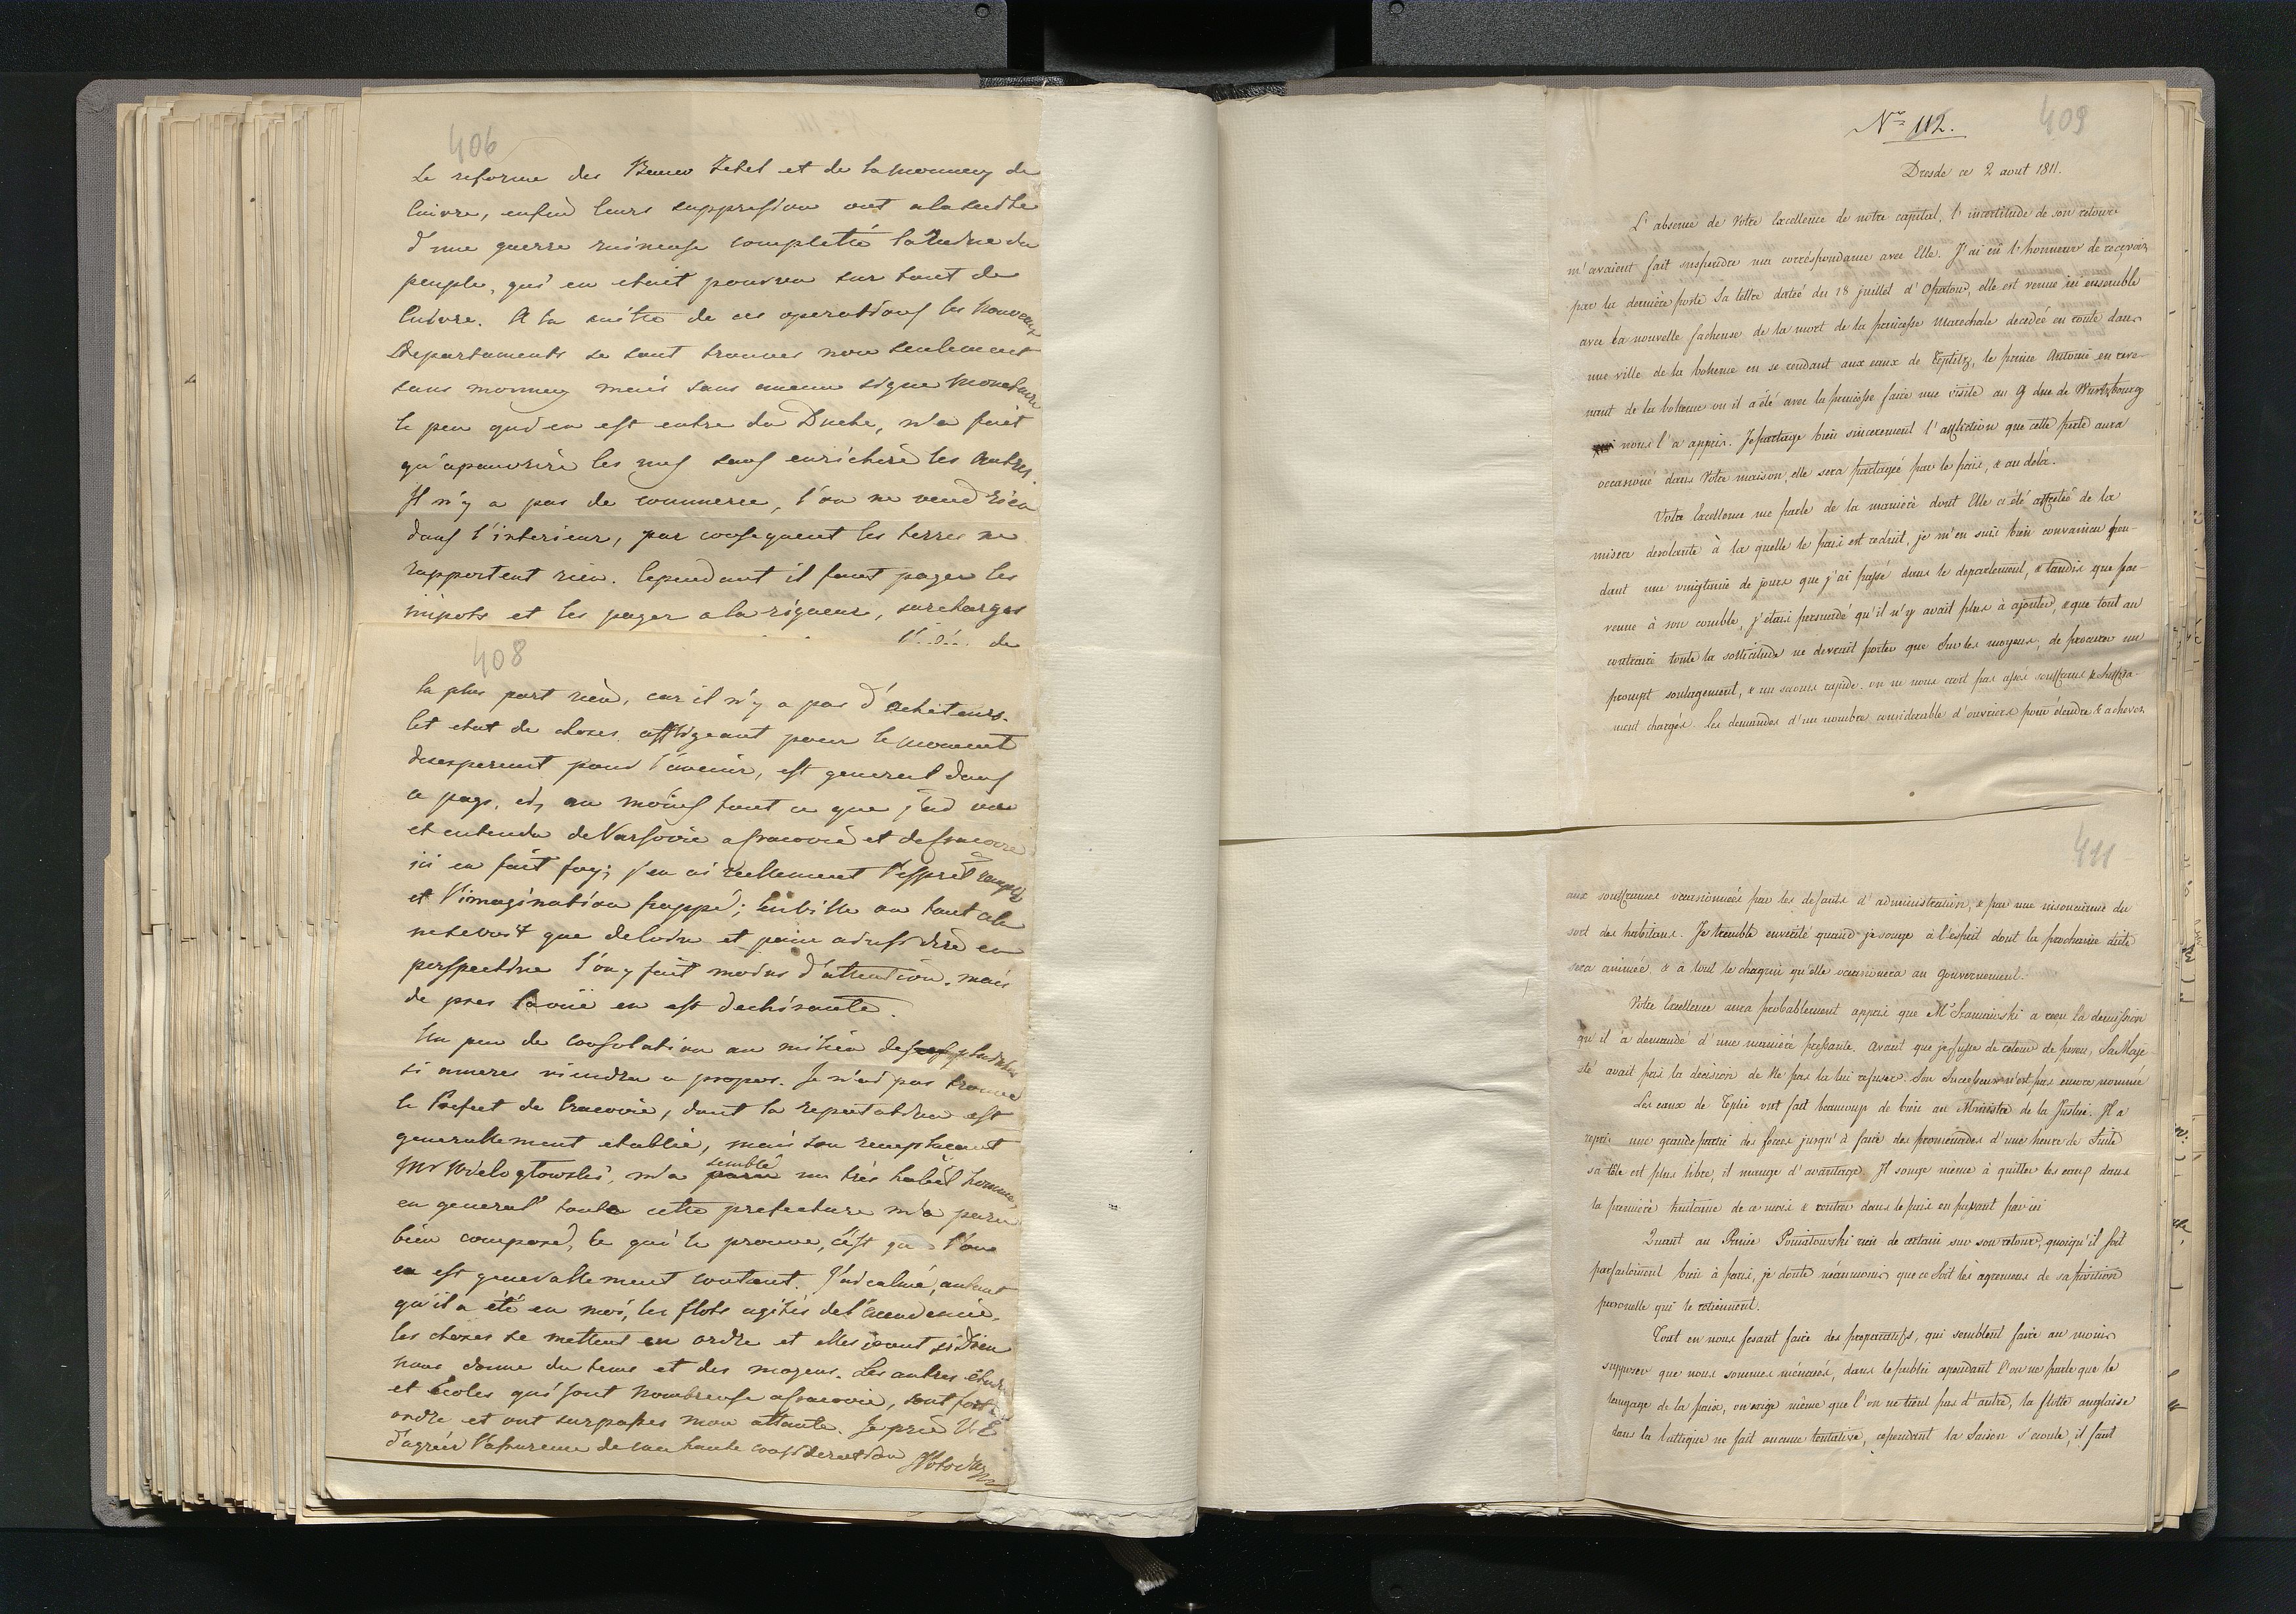 406
Le reforme des Banco Zetel et de la monney de
Cuivre, enfin leurs suppression ont a la suitte
d'une guerre ruineuse completté la ruine du
peuple, qui en etait pourvu sur tout de
Cuivre. A la suitte de ces operations les nouveaux
Departaments se sont trouves non seulement
sans monney mais sans aucun signe monetaire
le peu qui en est entre du Duche, n'a fait
qu'apauvrire les uns sans enrichire les autres.
Il n'y a pas de commerce, l'on ne vend rien
dans l'interieur, par consequent les terres ne
rapportent rien. Cependant il faut payer les
impots et les payer a la rigueur, surcharges
de
408
la plus part rien, car il n'y a pas d'acheteurs.
Cet etat de choses affligeant pour le moment
desesperent pour l'avenir, est general dans
ce pays, et, au moins tout ce que j'ai vu
et entendu de Varsovie a Cracovie et de Cracovie
ici en fait foy; j'en ai reellement l'esprit
et l'imagination frappé; en ville ou tout cela
ne se voit que de loin et
perspective l'on y fait moins d'attention, mais
de pres la vuë en est dechirante.
Un peu de consolation au milieu des
si ameres viendra a propos. Je n'ai pas trouvé
le Prefect de Cracovie, dont la reputation est
generallement etablie, mais son remplaçant
Mr Wielogłowski, m'a semblé un très habil homme,
en general toute cette prefecture m'a paru
bien composé, ce qui le prouve, c'est que l'on
en est generallement contant. J'ai calmé, autant
qu'il a été en moi, les flots agités de l'academie,
les choses se mettent en ordre et elles iront si Dieu
nous donne du tems et des moyens. Les autres
et écoles qui sont nombreuse a Cracovie, sont fort
ordre et ont surpasses mon attante. Je prie V. E
d'agréer l'assurence de ma haute consideration
No 112.
409
Dresde ce 2 aout 1811.
L'absence de Votre Excellence de notre capital, l'incertitude de son retour
m'avaient fait suspendre ma correspondance avec Elle. J'ai eu l'honneur de recevoir
par la dernière poste Sa lettre datée du 18 juillet d'Opatow, elle est venue ici ensemble
avec la nouvelle facheuse de la mort de la princesse Marechale decedée en route dans
une ville de la boheme en se rendant aux eaux de Teplitz, le prince Antoine en reve-
nant de la boheme ou il a été avec la princesse faire une visite au G duc de Wurtzbourg
nous l'a appris. Je partage bien sincerement l'affliction que cette perte aura
occasionné dans Votre maison, elle sera partagée par le païs, & au dela.
Votre Excellence me parle de la manière dont Elle a été affectée de la
misere desolante à la quelle le païs est reduit, je m'en suis bien convaincu pen-
dant une vingtaine de jours que j'ai passé dans le departement, & tandis que par-
venue à son comble, j'etais persuadé qu'il n'y avait plus à ajouter, & que tout au
contraire toute la sollicitude ne devrait porter que Sur les moyens, de procurer un
prompt soulagement, & un secours rapide. on ne nous croit pas assés souffrans &
ment chargés. les demandes d'un nombre considerable d'ouvriers pour étendre & achever
411
aux souffrances occasionnées par les defauts d'administration, & par une insouciance du
sort des habitans. Je tremble en verité quand je songe à l'esprit dont la prochaine diète
sera animée, & à tout le chagrin qu'elle occasionera au Gouvernement.
Votre Excellence aura probablement appris que Mr Szaniawski a reçu la demission
qu'il a demandé d'une manière pressante. Avant que je fusse de retour de, Sa Maje
sté avait pris la decision de Ne pas la lui refuser. Son Successeur n'est pas encore nommé
Les eaux de Teplic ont fait beaucoup de bien au Ministre de la Justice. Il a
repris une grande partie des forces jusqu'à faire des promenades d'une heure de Suite
sa tête est plus libre, il mange d'avantage. Il songe même à quitter les eaux dans
la première huitaine de ce mois & rentrer dans le païs en passant par ici
Quant au Prince Poniatowski rien de certain sur son retour, quoiqu'il soit
parfaitement bien à paris, je doute néanmoins que ce Soit les agremens de sa position
personelle qui le retiennent.
Tout en nous fesant faire des preparatifs, qui semblent faire au moins
supposer que nous sommes ménacés, dans le public cependant l'on ne parle que le
langage de la paix, on exige même que l'on ne tient pas d'autre, la flotte anglaise
dans la baltique ne fait aucune tentative, cependant la Saison s'ecoule, il faut